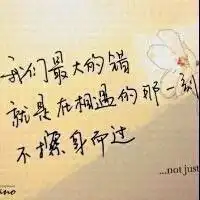 我们最大的错
就是在相遇的那一刻
不擦身而过
...not just
ano